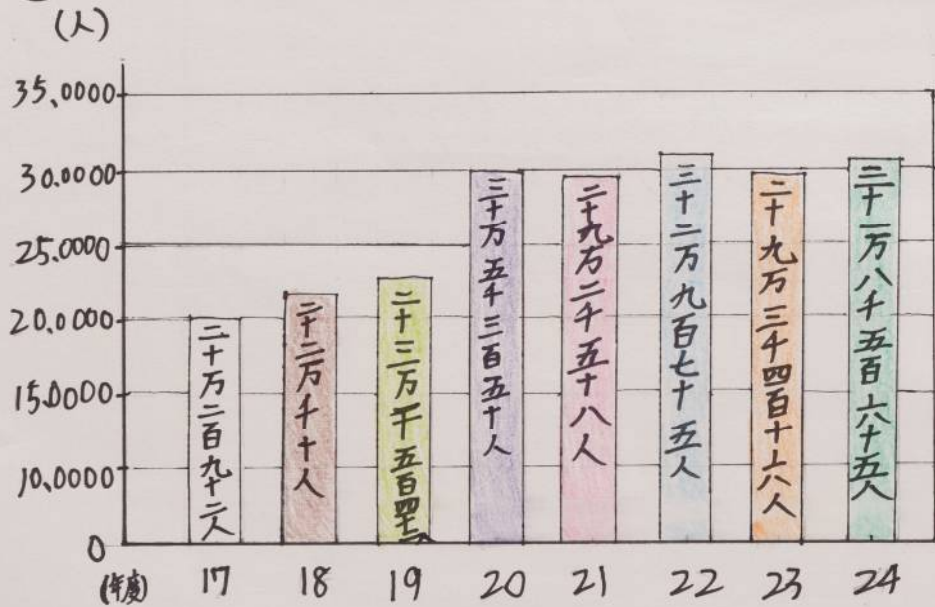 (人)
35,0000
30,0000
25,0000
20,0000
15,0000
10,0000
0
二十万二百九十二人
二十二万千十人
三十万五千三百五十人
二十九万二千五十八人
三十二万九百七十五人
二十九万三千四百十六人
三十一万八千五百六十五人
(年度) 17 18 19 20 21 22 23 24